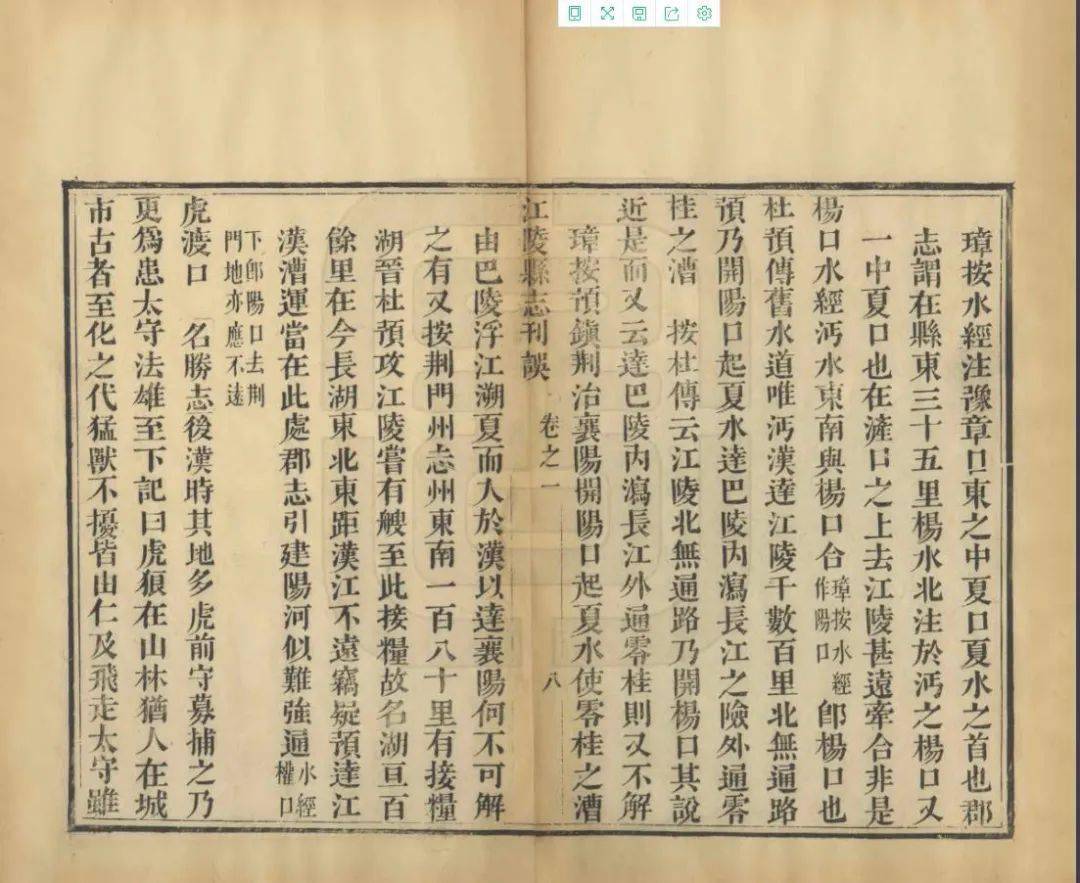 璋按水經注豫章口東之中夏口夏水之首也郡
志謂在縣東三十五里楊水北注於沔之楊口又
一中夏口也在滻口之上去江陵甚遠牽合非是
楊口水經沔水東南與楊口合璋按水經作陽口卽楊口也
杜預傳舊水道唯沔漢達江陵千數百里北無通路
預乃開陽口起夏水達巴陵內瀉長江之險外通零
桂之漕　按杜傳云江陵北無通路乃開楊口其說
近是而又云達巴陵內瀉長江外通零桂則又不解
璋按預鎮荆治襄陽開陽口起夏水使零桂之漕
江陵縣志刊誤　卷之一　八
由巴陵浮江溯夏而入於漢以達襄陽何不可解
之有又按荆門州志州東南一百八十里有接糧
湖晉杜預攻江陵嘗有艘至此接糧故名湖亘百
餘里在今長湖東北東距漢江不遠竊疑預達江
漢漕運當在此處郡志引建陽河似難強通水經權口
下卽陽口去荆門地亦應不遠
虎渡口　名勝志後漢時其地多虎前守募捕之乃
更爲患太守法雄至下記曰虎狼在山林猶人在城
市古者至化之代猛獸不擾皆由仁及飛走太守雖